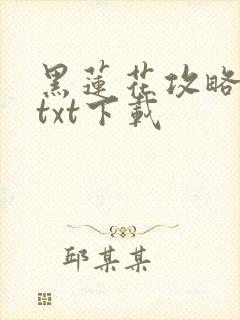 黑蓮花攻略
txt下載
邱某某